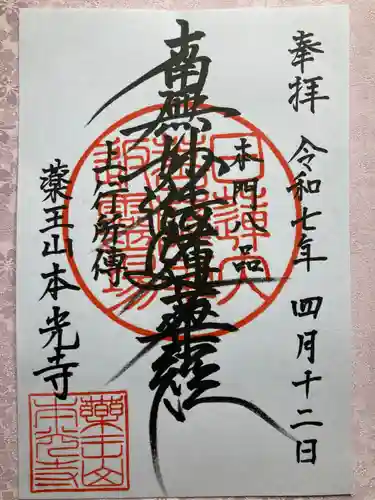 奉拝
令和七年 四月十二日
本門八品
南無妙法蓮華経
上行所傳
薬王山本光寺
薬王山
本光寺